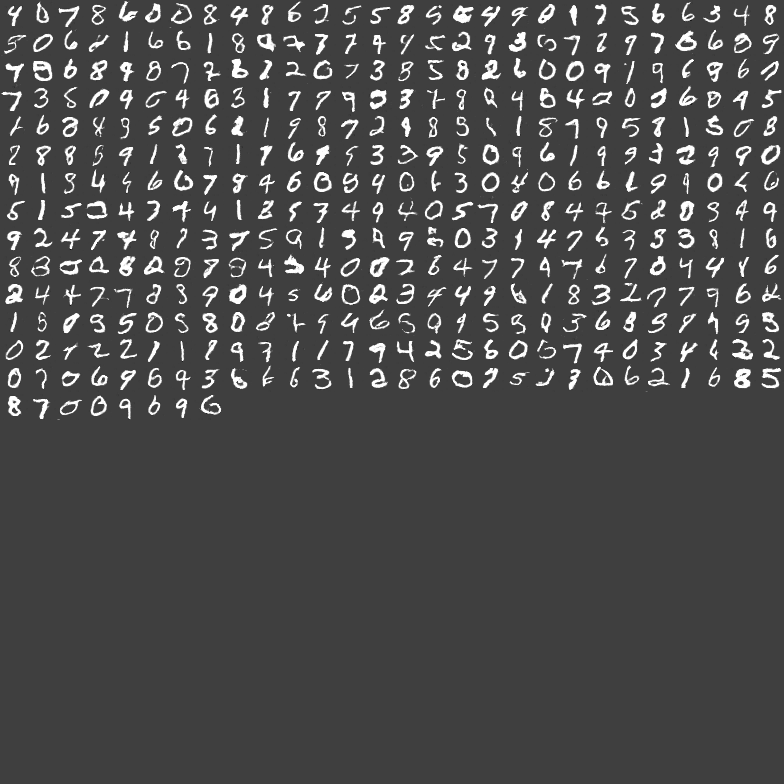 4 0 7 8 6 0 0 8 4 8 6 2 5 5 8 5 6 4 9 0 1 7 5 6 6 3 4 8
3 0 6 4 1 6 6 1 8 9 7 7 7 9 4 5 2 9 3 5 7 2 9 7 6 6 8 9
7 5 6 8 9 8 7 2 6 2 2 0 7 3 8 5 8 2 6 0 0 9 1 9 6 8 6 7
7 3 8 0 9 0 4 8 3 1 7 7 9 5 3 7 8 2 4 8 4 2 0 2 6 8 9 5
1 6 8 8 9 5 0 6 2 1 9 8 7 2 9 8 5 1 1 8 7 9 5 8 1 5 0 8
2 8 8 5 9 1 3 7 1 7 6 9 5 3 3 9 5 0 9 6 1 9 9 3 2 9 9 0
9 1 3 4 4 6 0 7 8 4 6 0 8 4 0 6 3 0 4 0 6 6 6 9 9 0 2 6
5 1 5 2 4 3 7 4 1 8 5 7 4 9 4 0 5 7 0 8 4 4 5 8 0 9 4 9
9 2 4 7 9 8 7 3 7 5 9 1 5 9 9 5 0 3 1 4 7 5 3 5 3 8 1 6
8 8 0 2 8 2 8 7 8 4 5 4 0 0 7 6 4 7 7 9 7 6 7 0 4 4 1 6
2 4 4 7 7 8 3 9 0 4 5 6 0 2 3 4 4 9 6 1 8 3 2 7 7 9 6 2
1 8 0 9 5 0 5 8 0 8 7 9 4 6 5 9 9 5 8 9 3 6 8 3 9 9 9 5
0 2 7 2 2 1 1 1 9 7 1 1 7 9 4 2 5 6 0 5 7 4 0 3 4 6 3 2
0 7 0 6 9 6 9 3 6 6 6 3 1 2 8 6 0 9 5 2 3 0 6 2 1 6 8 5
8 7 0 0 9 6 9 6